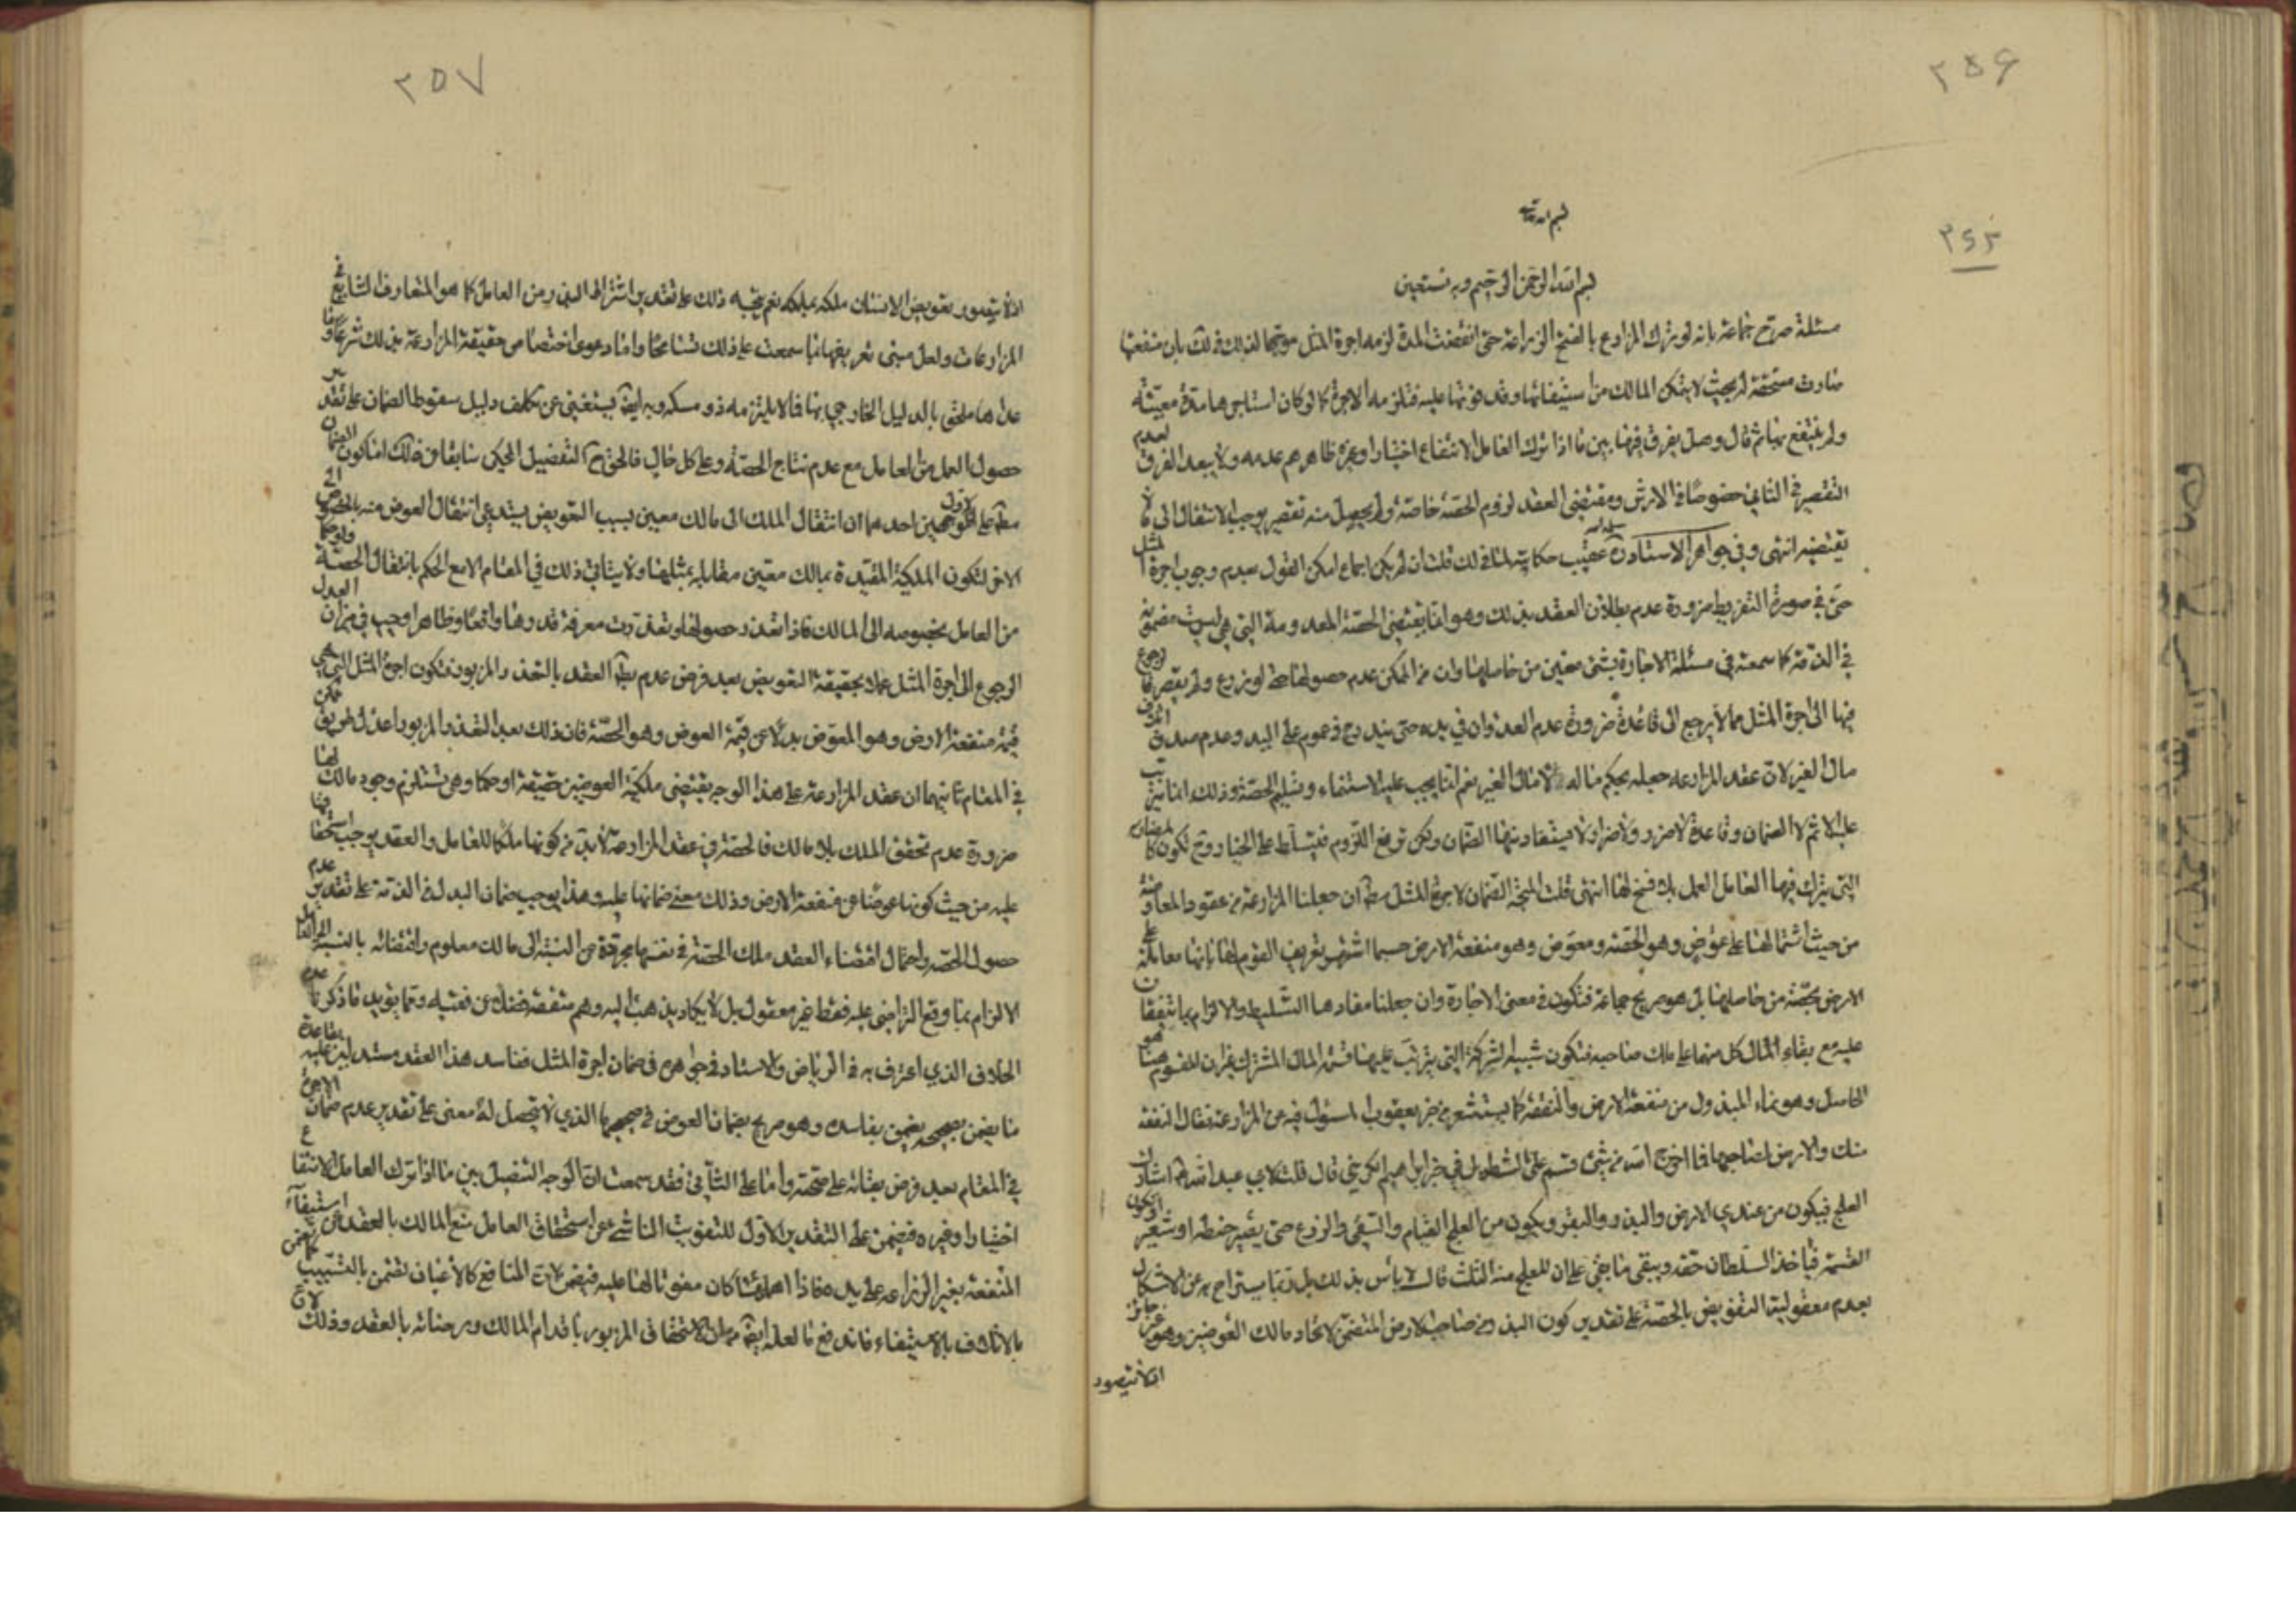 ٢٥۶
٢٤٣
بسم الله الرحمن الرحيم وبه نستعين
مسئلة صرّح جماعة بانه لو ترك المزارع بالفتح الزراعة حتى انقضت المدة لزمه اجرة المثل موجها لذلك بان منفعتها
صارت مستحقة له بحيث لا يتمكن المالك من استيفائها وقد فوتها عليه فتلزمه الاجرة كما لو كان استاجرها مدة معينة
ولم ينتفع بها ثم قال وهل يفرق فيها بين ما اذا ترك العامل الانتفاع اختيارا وغيره ظاهرهم عدمه ولا يبعد الفرق لعدم
التقصير في الثاني خصوصًا في الارش ومقتضى العقد لزوم الحصة خاصة ولم يحصل منه تقصير يوجب الانتقال الى ما لا
يقتضيه انتهى وفي جواهر الاستاد عقيب حكايته لما في لك قلت ان لم يكن اجماع امكن القول بعدم وجوب اجرة المثل
حتى في صورة التفريط ضرورة عدم بطلان العقد بذلك وهو انما يقتضى الحصة المعدومة التي هي ليست مضمونة
في الذمة كما سمعته في مسئلة الاجارة بشئ معين من حاصلها وان من الممكن عدم حصولها حتى لو زرع ولم يقصر فالرجوع
فيها الى اجرة المثل مما لا يرجع الى قاعدة ضرورة عدم العدوان في يده حتى يندرج في عموم على اليد وعدم صدق اتلاف
مال الغير لان عقد المزارعة جعله بحكم ماله لا مال الغير نعم انما يجب عليه الاستنماء وتسليم الحصة وذلك انما يترتب
عليه الاثم لا الضمان وقاعدة لا ضرر ولا ضرار لا يستفاد منها الضمان ولكن ترفع اللزوم فيتسلط على الخيار وح لكون كالمضاربة
التي يترك فيها العامل العمل بلا فسخ لها انتهى قلت المتجه الضمان لاجرة المثل مطلقا ان جعلنا المزارعة من عقود المعاوضة
من حيث اشتمالها على عوض وهو الحصة ومعوض وهو منفعة الارض حسبما اشتهر تعريف القوم لها بانها معاملة على
الارض بحصة من حاصلها بل هو صريح جماعة فتكون في معنى الاجارة وان جعلنا مفادها التسليط والالزام بما يتفقان
عليه مع بقاء المال كل منهما على ملك صاحبه فتكون شبيه الشركة التي يترتب عليها قسمة المال المشترك غير ان المقسوم هنا هو
الحاصل وهو نماء المبذول من منفعة الارض والنفقة كما يستشعر من خبر يعقوب المسئول فيه عن المزارعة فقال النفقة
منك والارض لصاحبها فما اخرج الله من شئ قسم على الشطر بل في خبر ابراهيم الكرخي قال قلت لابي عبد الله اشارك
العلج فيكون من عندي الارض والبذر والبقر ويكون من العلج القيام والسقي والزرع حتى يصير حنطة او شعير وتكون
القسمة فيأخذ السلطان حقه ويبقى ما بقي على ان للعلج منه الثلث قال لا بأس بذلك بل ربما يستراح به عن الاشكال
بعدم معقولية التفويض بالحصة على تقدير كون البذر من صاحب الارض المتضمن لاتحاد مالك العوضين وهو غير جائز
اذ لا يتصور
٢٥٧
اذ لا يتصور تعويض الانسان ملكه بملكه نعم يتجه ذلك على تقدير اشتراط البذر من العامل كما هو المتعارف الشايع في
المزارعات ولعل مبنى تعريفها بما سمعت على ذلك تسامحًا واما دعوى اختصاص حقيقة المزارعة بذلك شرعًا وما
عداها ملحق بالدليل الخارجي بها فمما لا يلتزمه ذو مسكة وبه ايضا يستغنى عن تكلف دليل سقوط الضمان على تقدير
حصول العمل من العامل مع عدم نتاج الحصة وعلى كل حال فالحق ح التفضيل المحكي سابقا في ذلك اما كون الضمان
مطلقا على الاول لوجهين احدهما ان انتقال الملك الى مالك معين بسبب التعويض يستدعي انتقال العوض منه بالخصوص الى
الاخر لتكون الملكية المقيدة بمالك معين مقابلة بمثلها ولا يتاتى ذلك في المقام الا مع الحكم بانتقال الحصة ولو حكما
من العامل بخصوصه الى المالك فاذا تعذر حصولها وتعذرت معرفة قدرها واقعًا وظاهرا وجب في ميزان العدل
الرجوع الى اجرة المثل عملا بحقيقة التعويض بعد فرض عدم بطلان العقد بالتعذر المزبور فتكون اجرة المثل التي هي
قيمة منفعة الارض وهو المعوّض بدلا عن قيمة العوض وهو الحصة فان ذلك بعد التعذر المزبور اعدل طريق ممكن
في المقام ثانيهما ان عقد المزارعة على هذا الوجه يقتضى ملكية العوضين حقيقة او حكما وهي تستلزم وجود مالك لها
ضرورة عدم تحقق الملك بلا مالك فالحصة في عقد المزارعة لابد من كونها ملكا للعامل والعقد يوجب استحقاقها
عليه من حيث كونها عوضا عن منفعة الارض وذلك معنى ضمانها عليه وهذا يوجب ضمان البدل في الذمة على تقدير عدم
حصول الحصة واحتمال اقتضاء العقد ملك الحصة في نفسها مجردة عن النسبة الى مالك معلوم واقتضائه بالنسبة الى العامل
الالزام بما وقع التراضي عليه فقط غير معقول بل لا يكاد يذهب اليه وهم متفقه فضلا عن فقيه ومما يؤيد ما ذكرنا عدم
الخلاف الذي اعترف به في الرياض والاستاد في جواهره في ضمان اجرة المثل في فاسد هذا العقد مستدلين عليه بقاعدة
ما يضمن بصحيحه يضمن بفاسده وهو صريح بضمان العوض في صحيحها الذي لا يتحصل له معنى على تقدير عدم ضمان الاجرة
في المقام بعد فرض بقائه على صحته واما على الثاني فقد سمعت ان الوجه التفصيل بين ما اذا ترك العامل الانتفاع
اختيارا وغيره فيضمن على التقدير الاول للتفويت الناشئ عن استحقاق العامل منع المالك بالعقد عن استيفاء
المنفعة بغير الزراعة على يده فاذا اهملها كان مفوتا لها عليه فيضمن لان المنافع كالاعيان تضمن بالتسبيب كما تضمن
بالاتلاف بالاستيفاء فاندفع ما لعله ايضا من ان الاستحقاق المزبور باقدام المالك ورضائه بالعقد وذلك لان